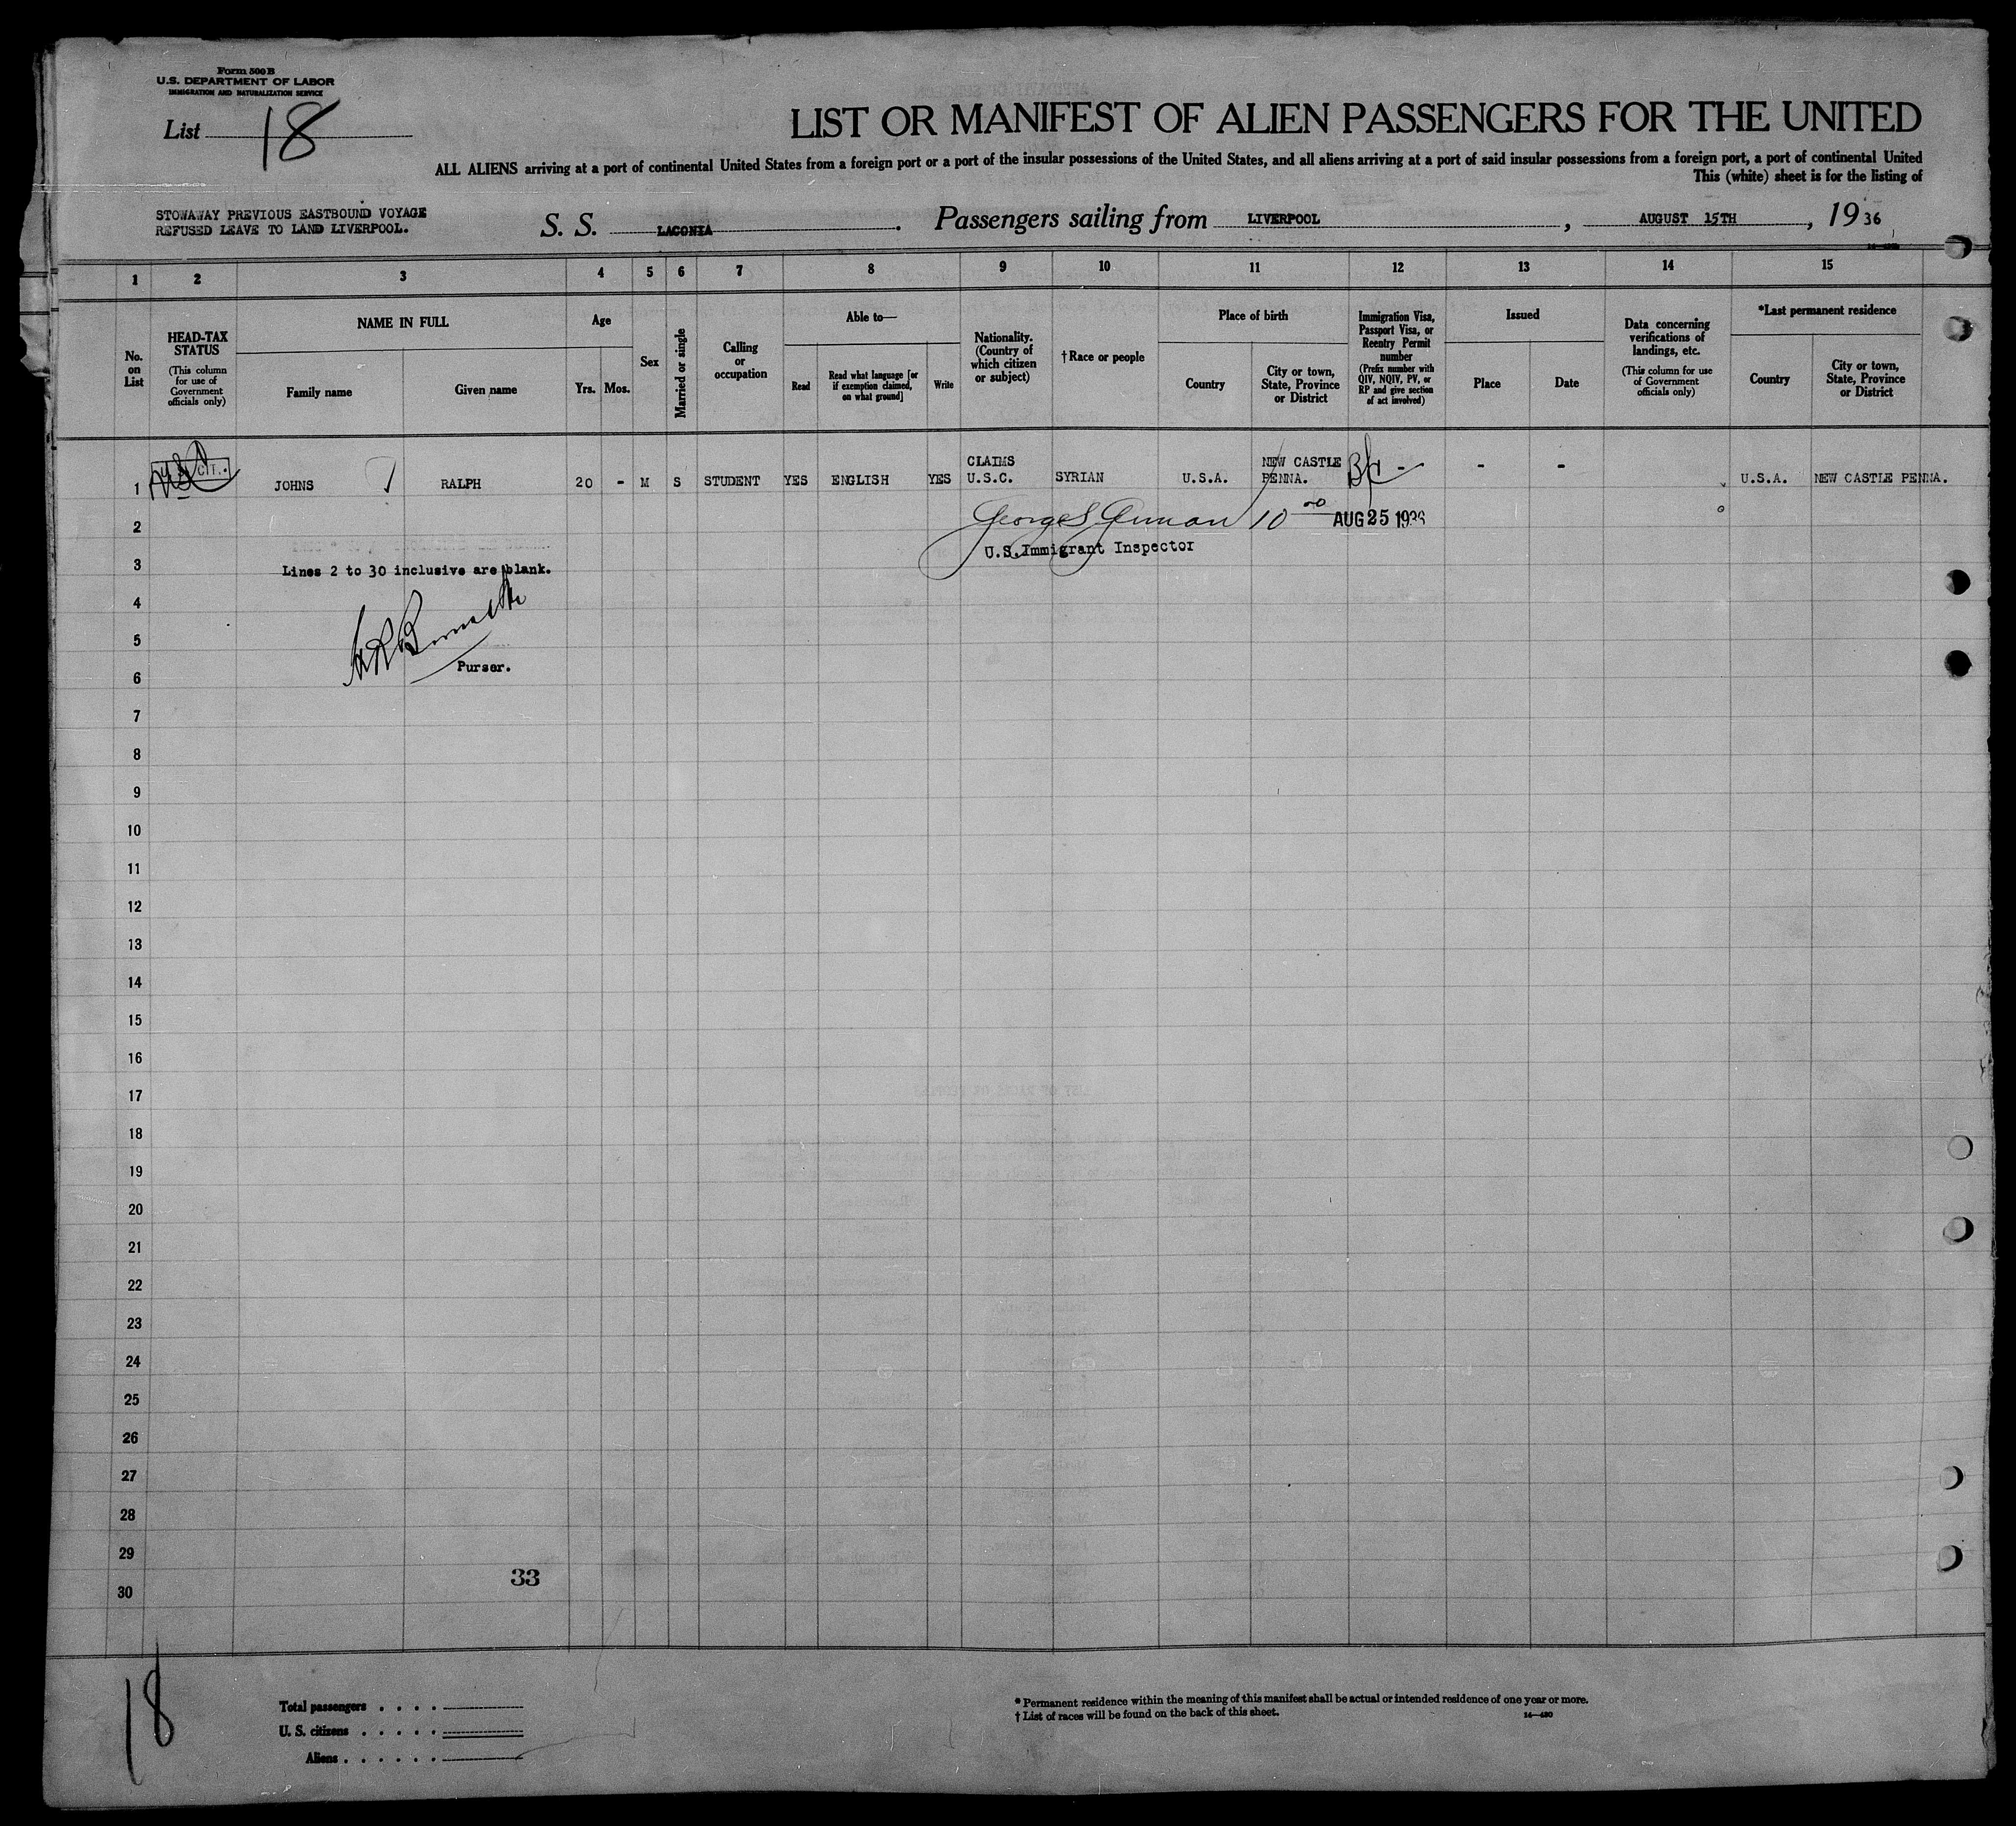 Form 500 B
U.S. DEPARTMENT OF LABOR
IMMIGRATION AND NATURALIZATION SERVICE
List 18
LIST OR MANIFEST OF ALIEN PASSENGERS FOR THE UNITED
ALL ALIENS arriving at a port of continental United States from a foreign port or a port of the insular possessions of the United States, and all aliens arriving at a port of said insular possessions from a foreign port, a port of continental United
This (white) sheet is for the listing of
STOWAWAY PREVIOUS EASTBOUND VOYAGE
REFUSED LEAVE TO LAND LIVERPOOL.
S. S. LACONIA. Passengers sailing from LIVERPOOL, AUGUST 15TH, 1936
1 2 3 4 5 6 7 8 9 10 11 12 13 14 15
No. on List
HEAD-TAX STATUS
(This column for use of Government officials only)
NAME IN FULL
Family name
Given name
Age
Yrs. Mos.
Sex
Married or single
Calling or occupation
Able to—
Read
Read what language [or if exemption claimed, on what ground]
Write
Nationality. (Country of which citizen or subject)
†Race or people
Place of birth
Country
City or town, State, Province or District
Immigration Visa, Passport Visa, or Reentry Permit number
(Prefix number with QIV, NQIV, PV, or RP and give section of act involved)
Issued
Place
Date
Data concerning verifications of landings, etc.
(This column for use of Government officials only)
*Last permanent residence
Country
City or town, State, Province or District
1 JOHNS RALPH 20 - M S STUDENT YES ENGLISH YES CLAIMS U.S.C. SYRIAN U.S.A. NEW CASTLE PENNA. - - - U.S.A. NEW CASTLE PENNA.
2 10 AUG 25 1936
U.S. Immigrant Inspector
3 Lines 2 to 30 inclusive are blank.
4
5
Purser.
6
7
8
9
10
11
12
13
14
15
16
17
18
19
20
21
22
23
24
25
26
27
28
29
33
30
18
Total passengers . . . .
U. S. citizens . . . . .
Aliens . . . . . .
* Permanent residence within the meaning of this manifest shall be actual or intended residence of one year or more.
† List of races will be found on the back of this sheet.
14—430